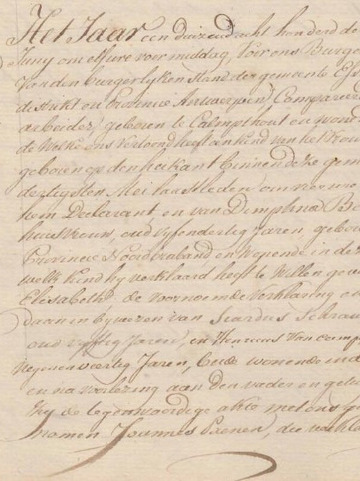 Het Jaar een duizend acht honderd de
Juny om elf ure voor middag, voor ons Burge
van den burgerlyken stand der gemeente Es
district en Provincie Antwerpen, Compareerd
arbeider, geboren te Calmpthout en woon
de Welke ons vertoond heeft een kind van het vrou
geboren op den heikant binnen deze gem
dertigsten Mei
hem Declarant en van Dimphna B
huisvrouw, oud vyf en dertig jaren, gebo
Provincie Noordbraband en wonende in de
welk kind hy verklaard heeft te willen ge
Elisabeth de voornoemde verklaring en
daan in bywezen van
oud vyftig Jaren, en Henricus Van Camp
Negen en veertig Jaren, beide wonende
en na voorlezing aan den vader en get
hy de tegenwoordige akte met ons g
nomen Joannes die verkla